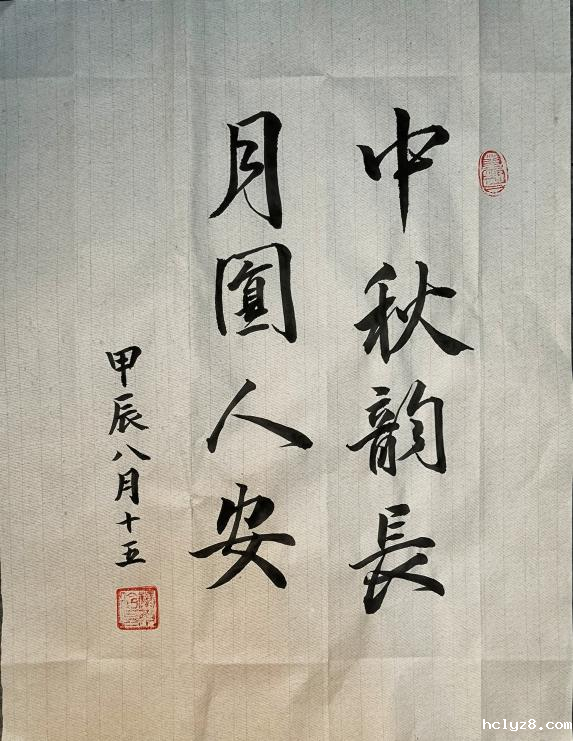 中秋韵長
月圓人安
甲辰八月十五
hclyz8.com